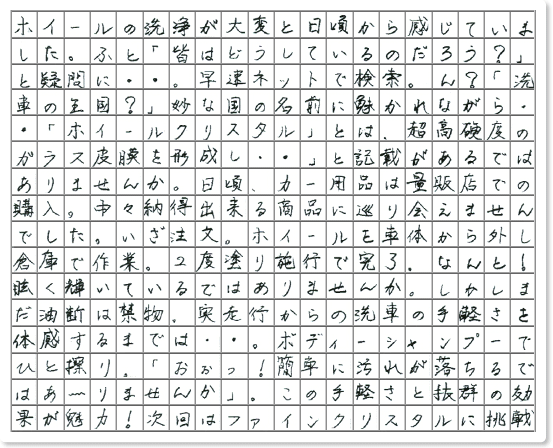 ホイールの洗浄が大変と日頃から感じていま
した。ふと「皆はどうしているのだろう?」
と疑問に・・。早速ネットで検索。ん?「洗
車の王国?」妙な国の名前に魅かれながら・
・「ホイールクリスタル」とは、超高硬度の
ガラス皮膜を形成し・・」と記載があるでは
ありませんか。日頃、カー用品は量販店での
購入。中々納得出来る商品に巡り会えません
でした。いざ注文。ホイールを車体から外し
倉庫で作業。2度塗り施行で完了。なんと!
眩く輝いているではありませんか。しかしま
だ油断は禁物。実走行からの洗車の手軽さを
体感するまでは・・。ボディーシャンプーで
ひと擦り。「おぉっ!簡単に汚れが落ちるで
はあ〜りませんか」。この手軽さと抜群の効
果が魅力!次回はファインクリスタルに挑戦